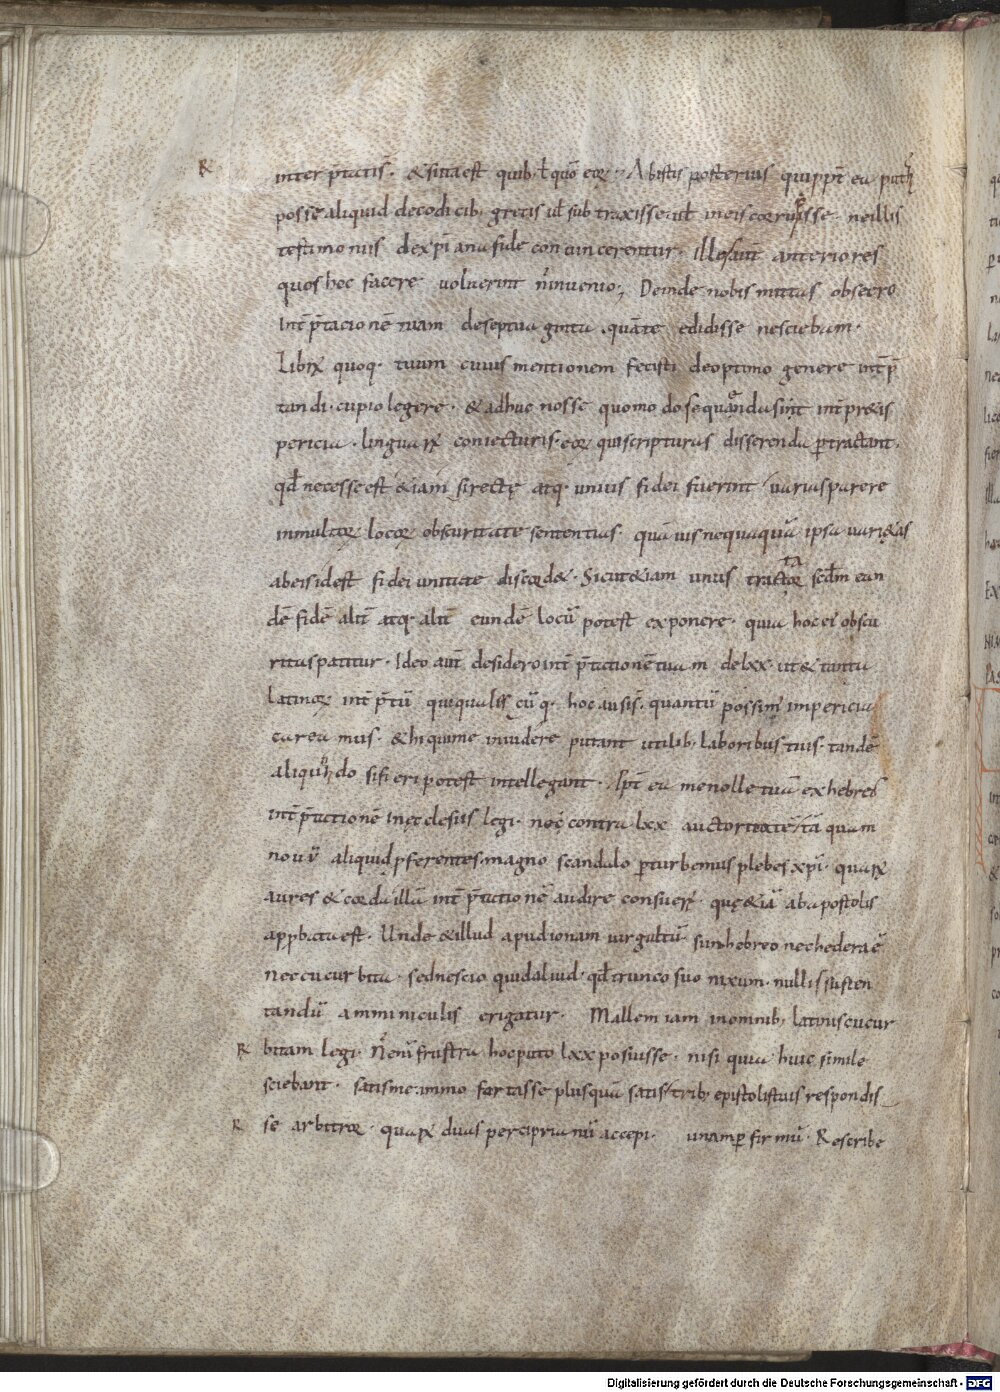 R inter p̄tatis̄. & si ita est quib; ł quō eoꝝ. Ab istis posterius quippē eū
posse aliquid de codicib; grecis uł sub traxisse uł in eis corrupisse. ne illis
testimoniis de xpiana fide conuincerentur. Illi sunt̄ anteriores
quos hoc facere uoluerint n̄ inuenio; Deinde nobis mittas obsecro
int̄p̄tacionē tuam de septuaginta. quā te edidisse nesciebam.
Librū quoq. tuum cuius mentionem fecisti de optimo genere int̄p̄
tandi. cupio legere. & adhuc nosse quomodo sequanda sint int̄pr&is
pericia. linguarū coniecturis. eoꝝ qui scripturas disserendo ꝑtractant.
qđ necesse est &iam si rectę atq. unius fidei fuerint uarias parere
in multoꝝ locoꝝ obscuritate sententias. quā uis nequaquā ipsa uari&as
ab eis id est fidei unitate discord&. Sicut &iam unus tractatoꝝ scđm ean
dē fidē alit̄ atq. alit̄ eundē locū potest exponere. quia hoc ei' obscu
ritas patitur. Ideo aut̄ desidero int̄p̄tationē tuam de lxx. ut & tanta
latinoꝝ int̄p̄tū qui qualis cū q. hoc ausi s̄. quantū possim' impericia
careamus. & hi qui me inuidere putant utilib; laboribus tuis. tandē
aliquando si fieri potest intellegant. Ipt̄ ea me nolle tuā ex hebreo
int̄p̄tationē in ęcclesiis legi. nec contra lxx auctoritatē tā quam
nouū aliquid p̄ferentes magno scandalo ꝑturbemus plebes xpi. quarū
aures & corda illā int̄p̄tationē audire consuer. quę &iā ab apostolis
app̄bata est. Unde & illud apud ionam uirgultū. si in hebreo nec hedera ē
nec cucurbita. sed nescio quid aliud. qđ trunco suo nixum. nullis susten
tandū amminiculis erigatur. Mallem iam in omnib; latinis cucur
R bitam legi. N̄ enī frustra hoc puto lxx posuisse. nisi quia huic simile
sciebant. satis me. immo fortasse plus quā satis trib; epistolis tuis respondis
R se arbitror. quarū duas per ciprianū accepi. unam ꝑ firmū. Rescribe
Digitalisierung gefördert durch die Deutsche Forschungsgemeinschaft - DFG